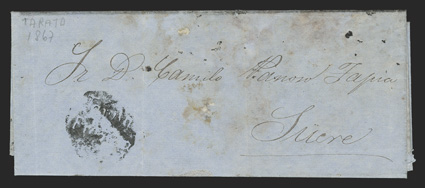 TARATO
1867
Sr. D. Camilo Ramon Tapia
Sucre